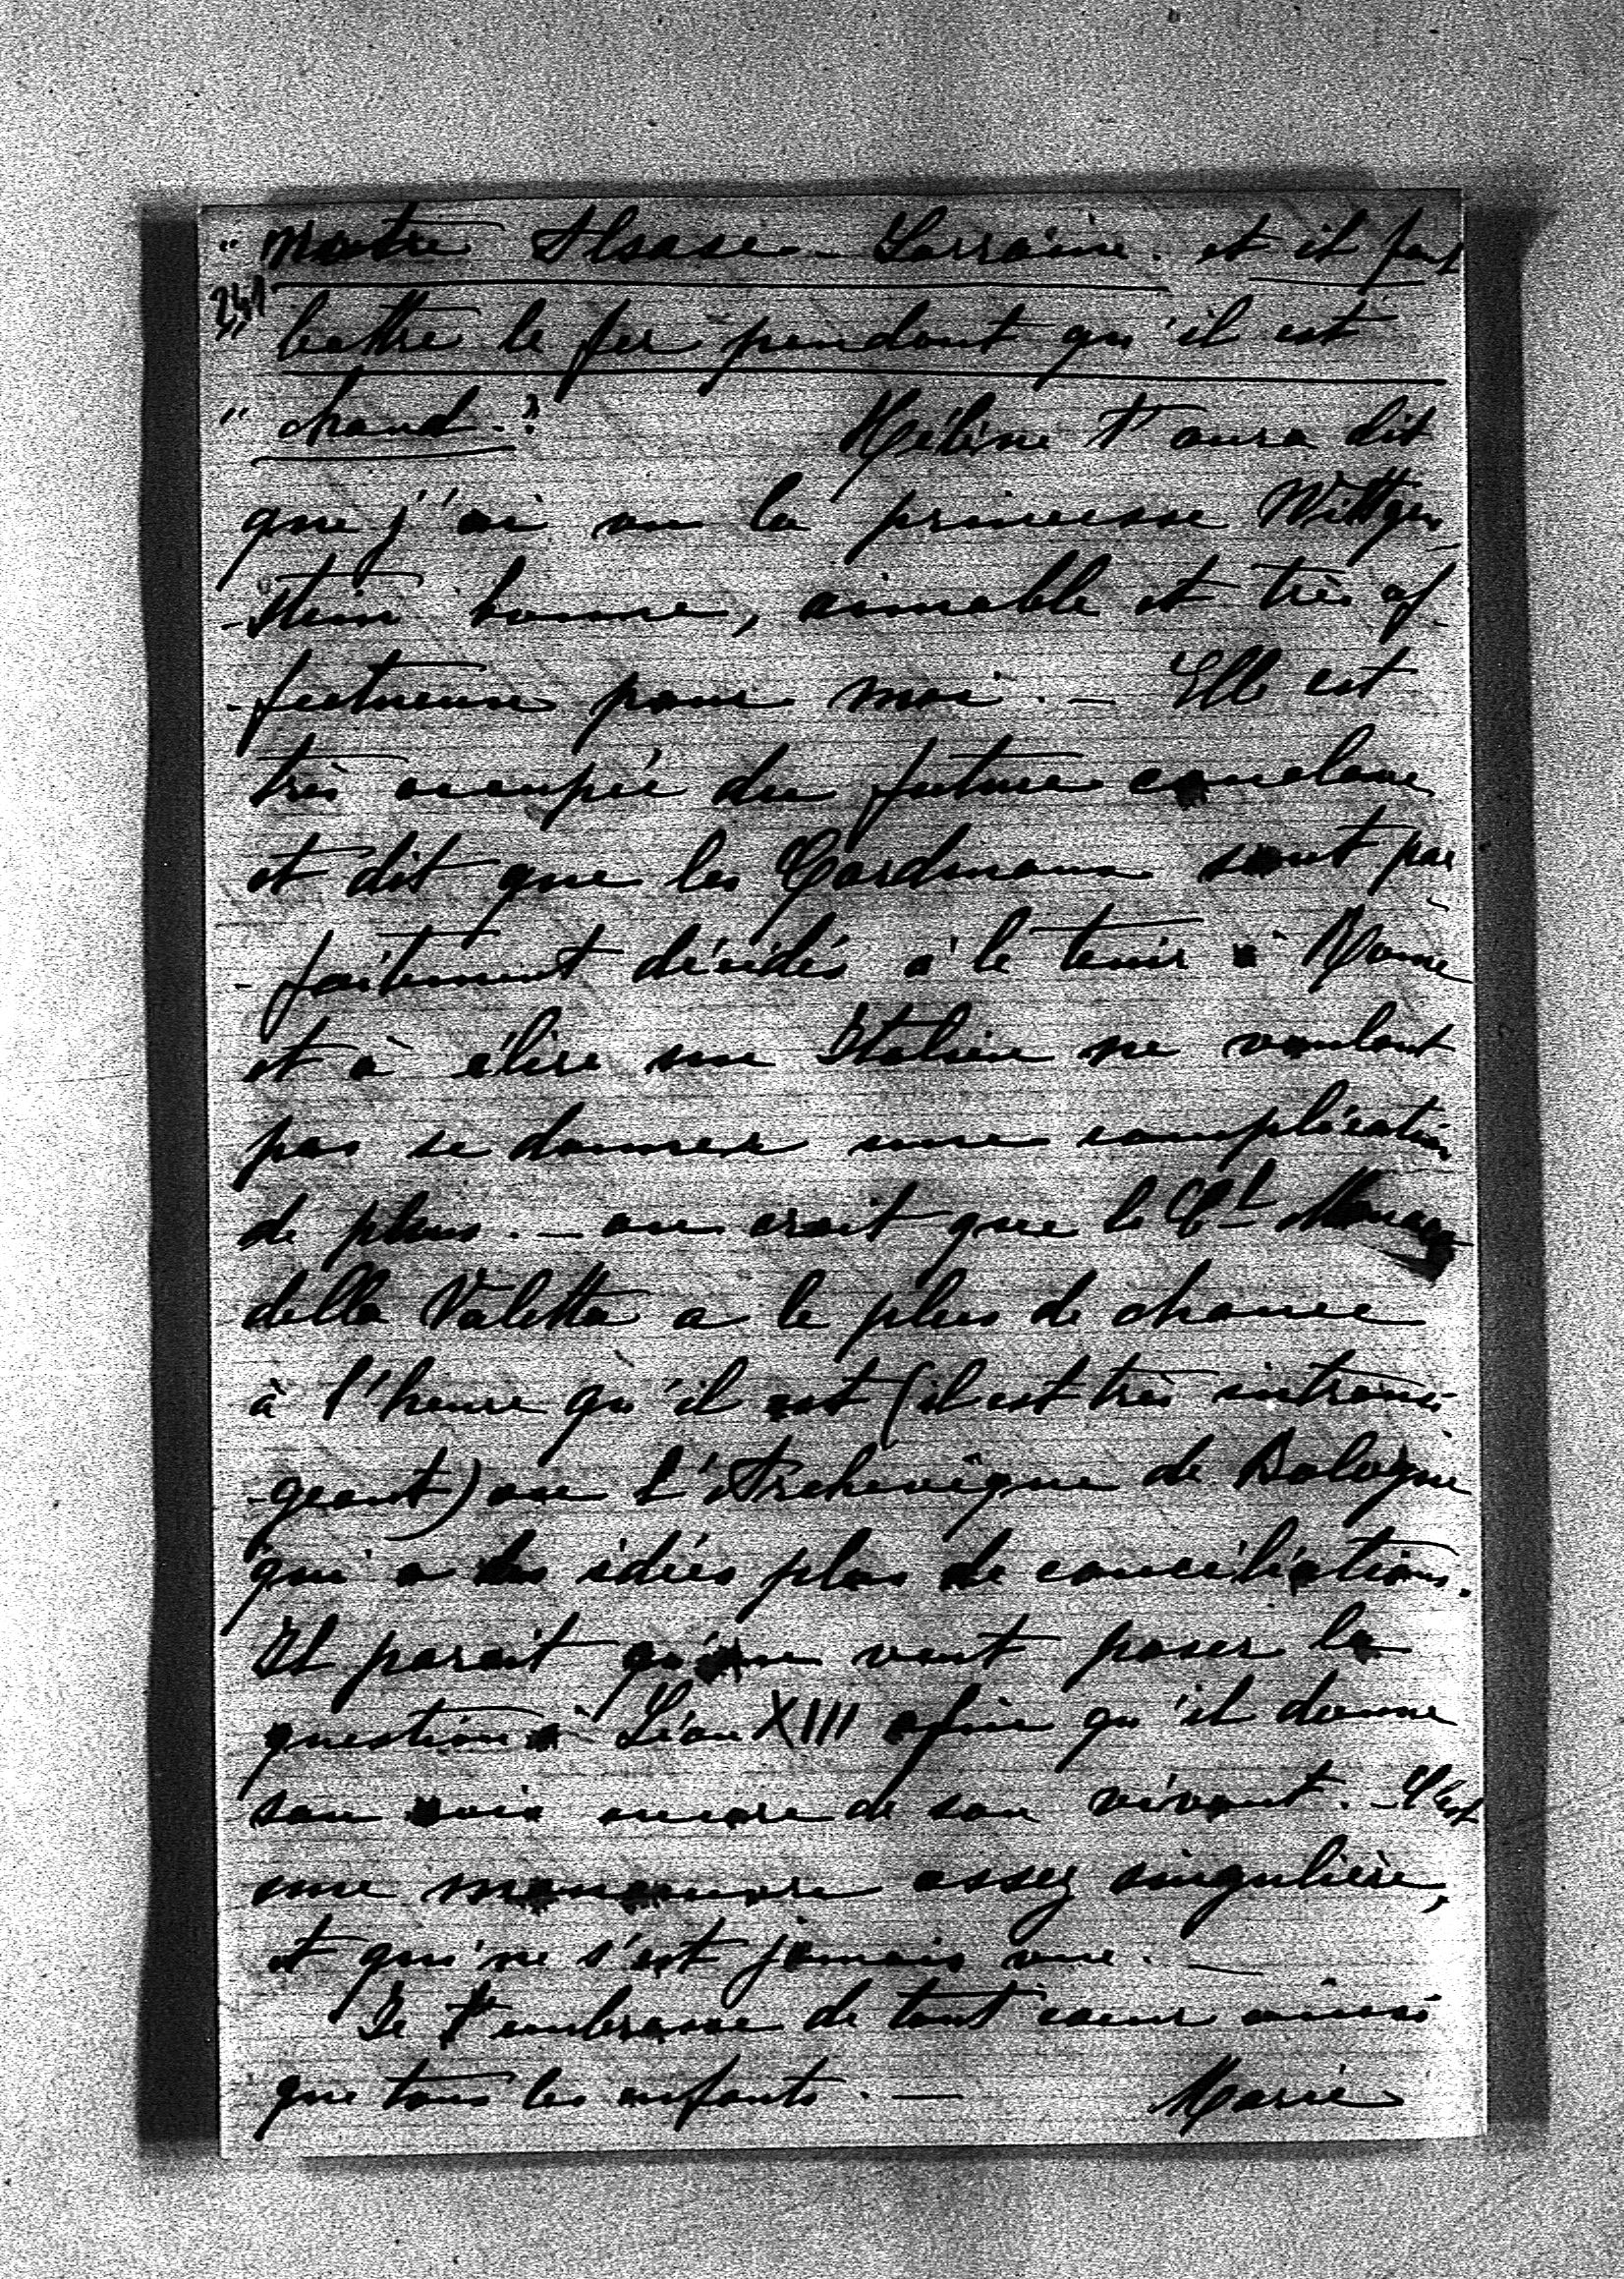 " notre Alsase-Lorraine. et il faut
241
" battre le fer pendant qu'il est
" chaud.? Hélène t'aura dit
que j'ai vu la princesse Wittgen
-stein bonne, aimable et très af
-fectueuse pour moi. — Elle est
très occupée du future conclave
et dit que les Cardinaux sont par
-faitement décidés à le tenir à Rome
et à élire un Italien ne voulant
pas se donner une complication
de plus. — on croit que le Cl Monaco
della Valetta a le plus de chance
à l'heure qu'il est (il est très intransi-
-geant) ou L'Archevêque de Bologne
qui a des idées plus de conciliations.
Il parait qu'on veut poser la
question à Léon XIII afin qu'il donne
son avis encore de son vivant. — C'est
une manoeuvre assez singulière,
et qui ne s'est jamais vue. —
Je t'embrasse de tout coeur ainsi
que tous les enfants. — Marie